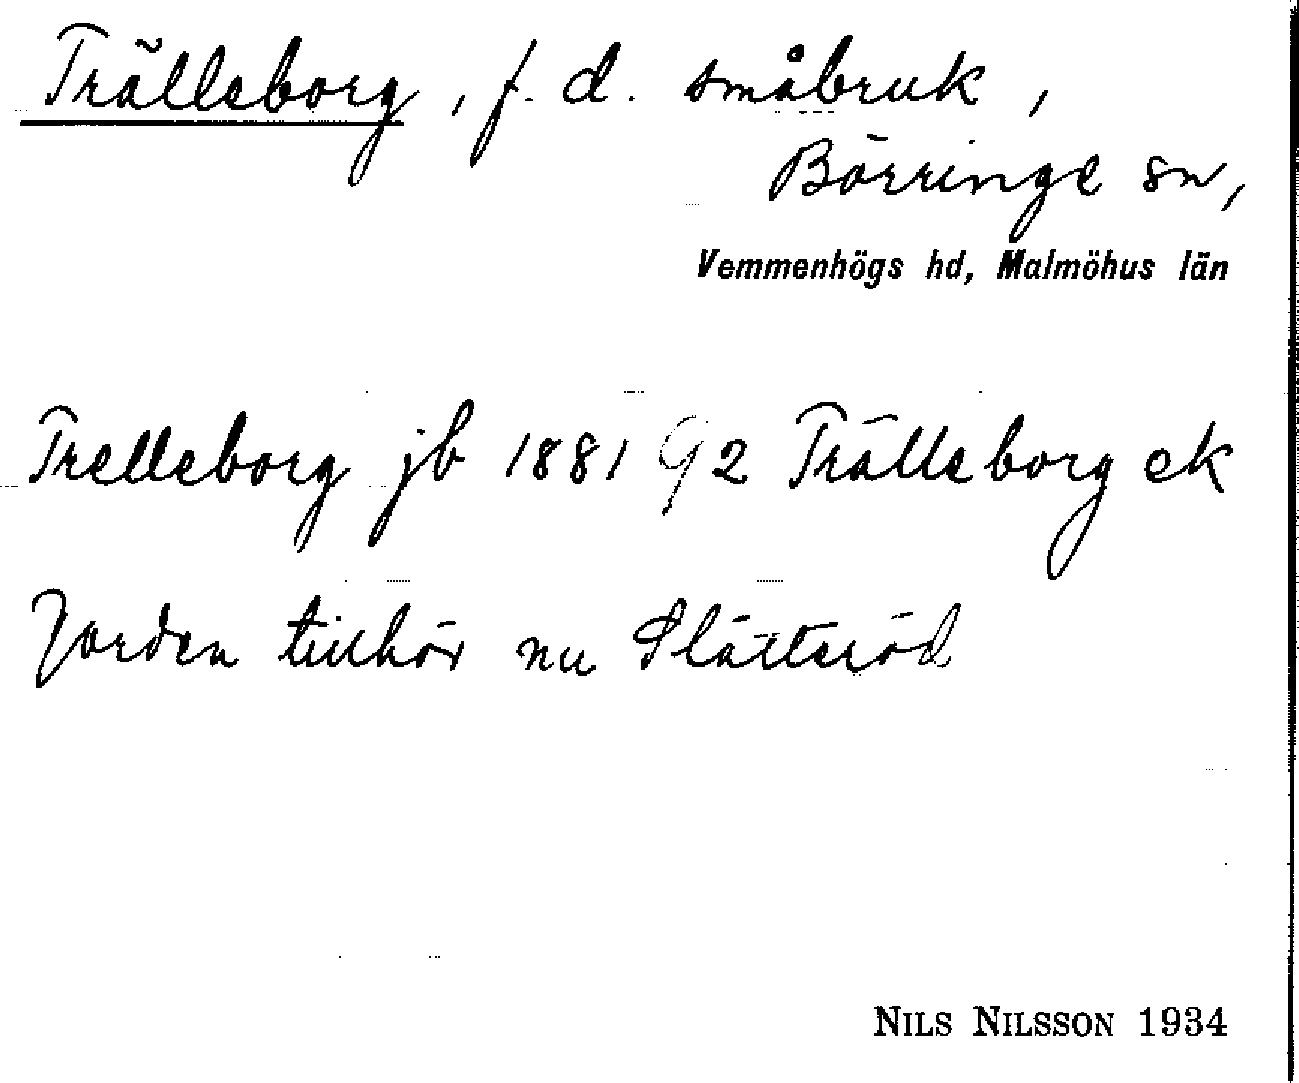 Trälleborg, f. d. småbruk,
Börringe sn,
Vemmenhögs hd, Malmöhus län
Trelleborg jb 1881 92 Trälleborg ek
Jorden tillhör nu Slätteröd
NILS NILSSON 1934